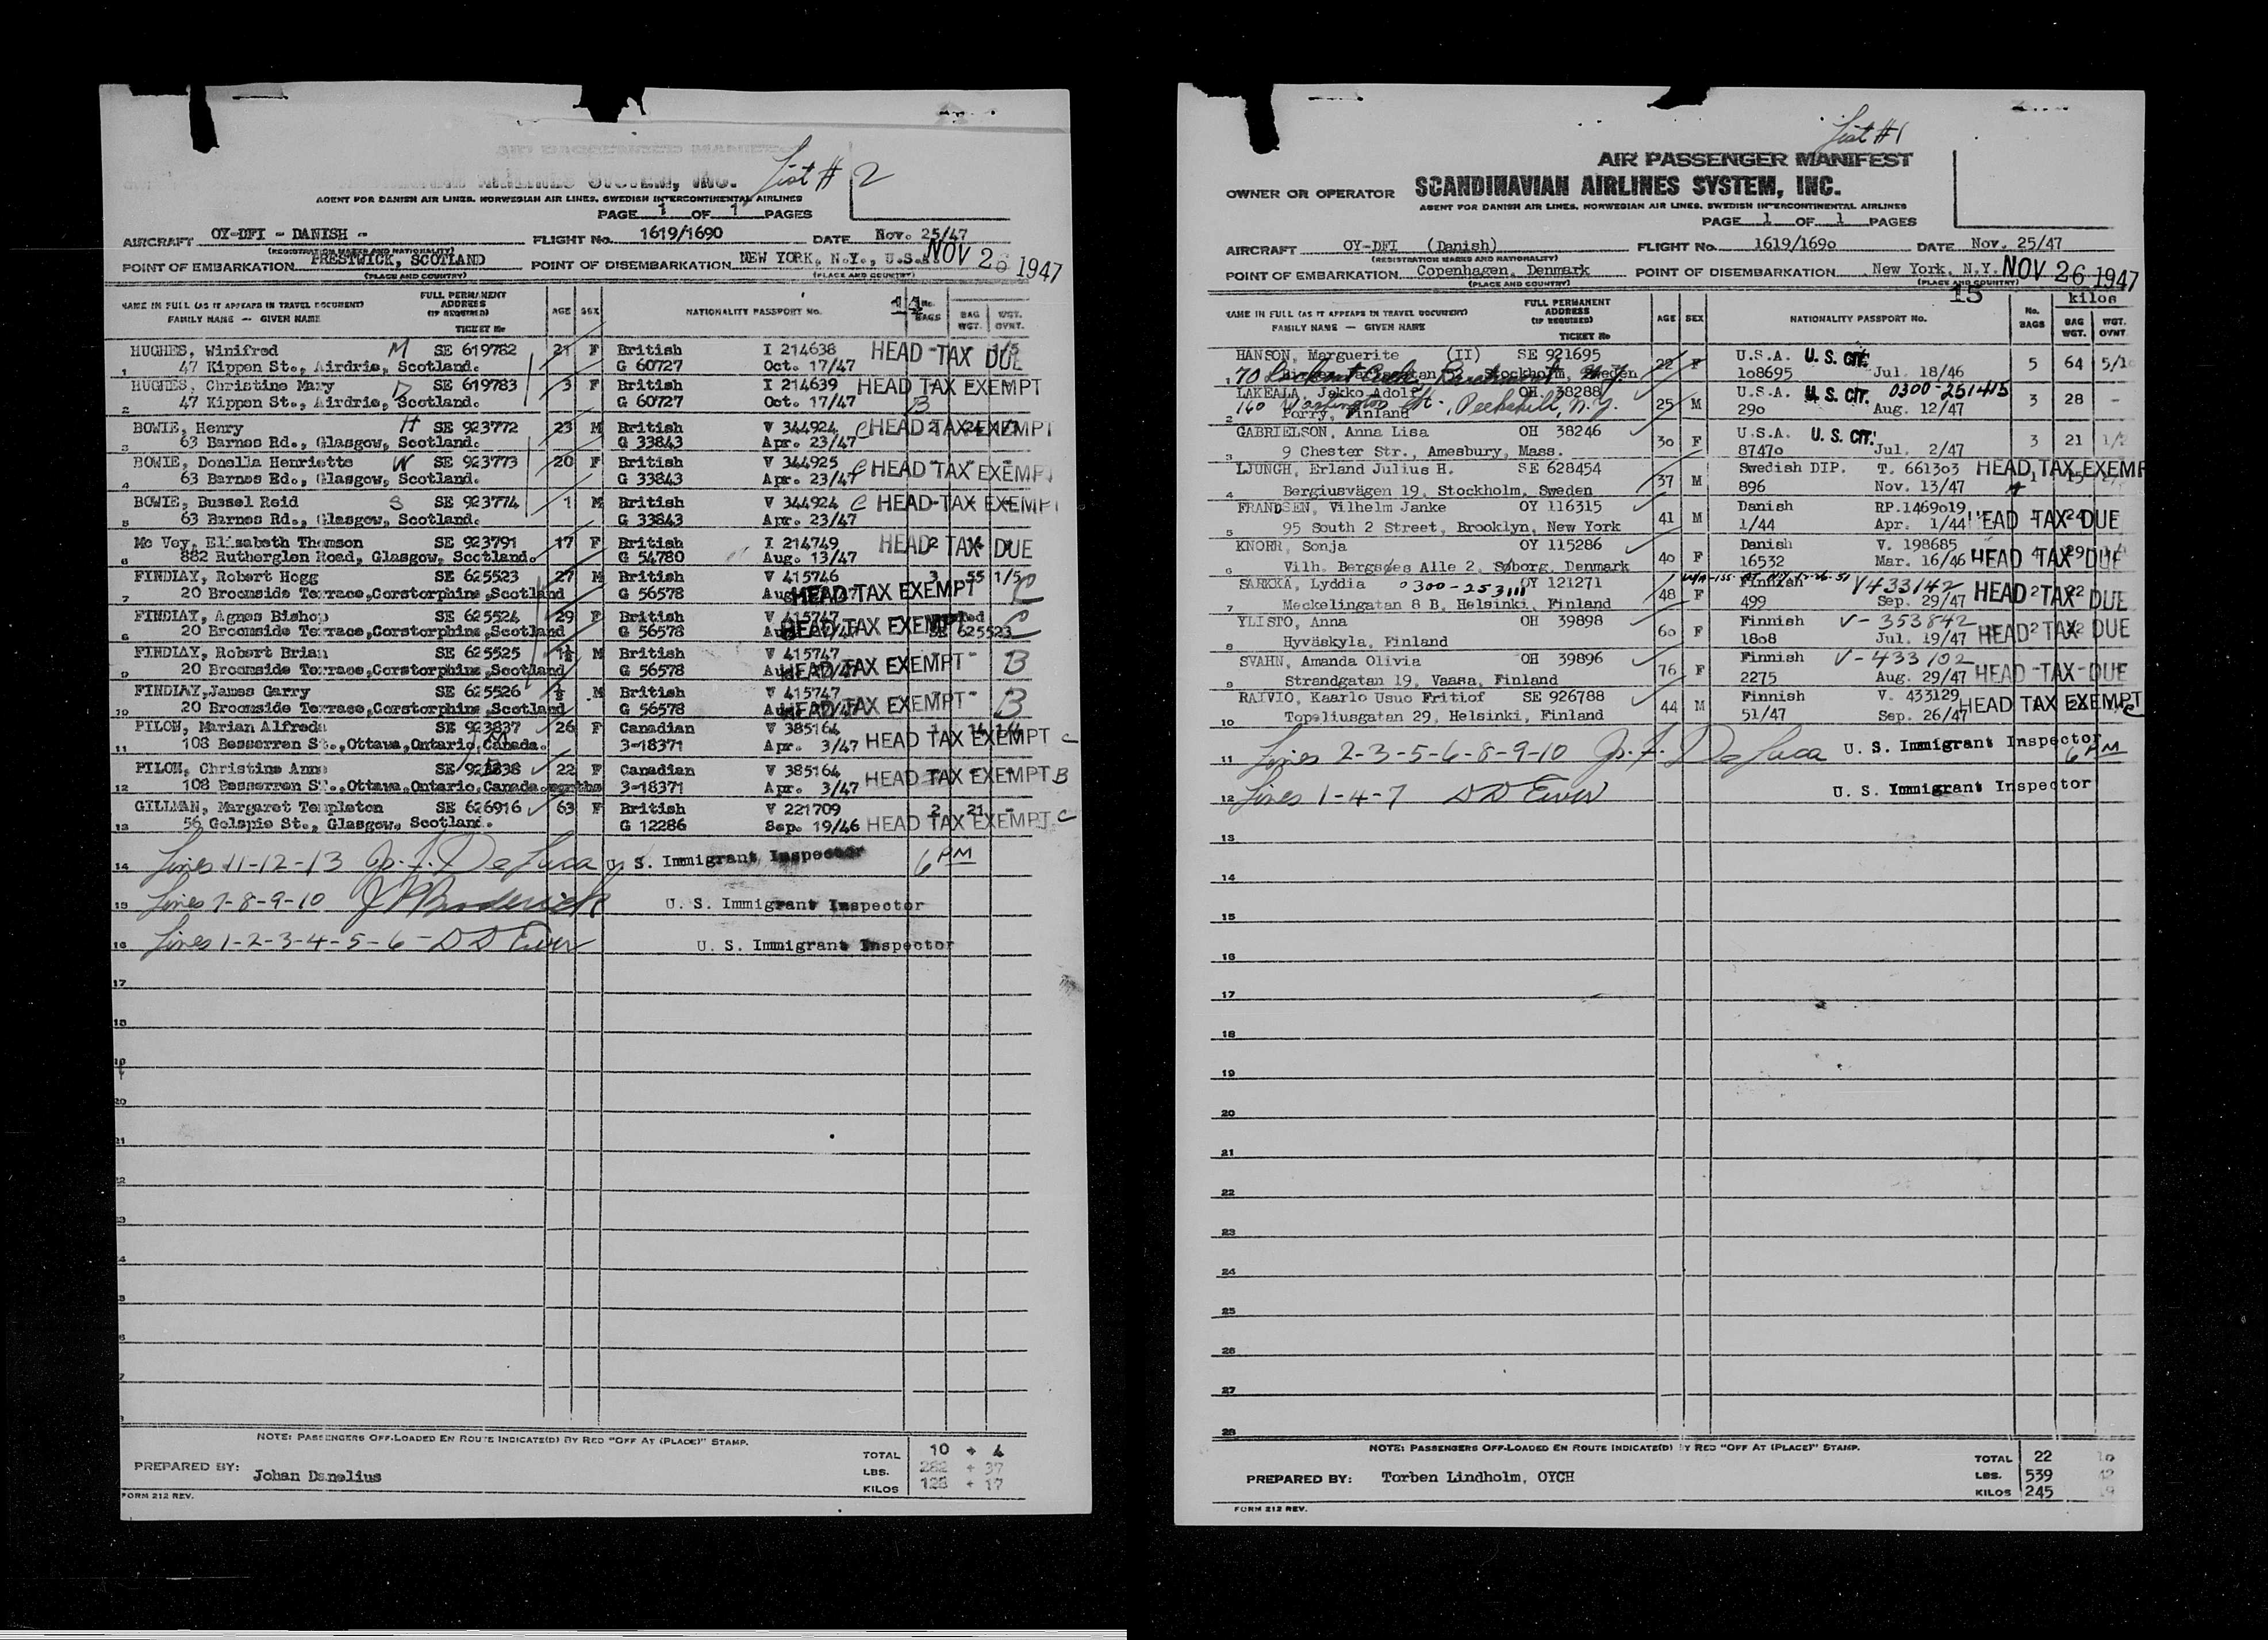 List # 2
AIR PASSENGER MANIFEST
AIRLINES SYSTEM, INC.
AGENT FOR DANISH AIR LINES, NORWEGIAN AIR LINES, SWEDISH INTERCONTINENTAL AIRLINES
PAGE 1 OF 1 PAGES
AIRCRAFT OY-DFI - DANISH - FLIGHT No. 1619/1690 DATE Nov. 25/47
(REGISTRATION MARKS AND NATIONALITY)
POINT OF EMBARKATION PRESTWICK, SCOTLAND POINT OF DISEMBARKATION NEW YORK, N.Y., U.S.A. NOV 26 1947
(PLACE AND COUNTRY) (PLACE AND COUNTRY)
NAME IN FULL (AS IT APPEARS IN TRAVEL DOCUMENT) FULL PERMANENT ADDRESS (IF REQUIRED) AGE SEX NATIONALITY PASSPORT No. 14 No. BAGS BAG WGT. WGT. OVWT.
FAMILY NAME — GIVEN NAME TICKET No
HUGHES, Winifred M SE 619782 21 F British I 214638 HEAD TAX DUE
1 47 Kippen St., Airdrie, Scotland. G 60727 Oct. 17/47
HUGHES, Christine Mary D SE 619783 3 F British I 214639 HEAD TAX EXEMPT
2 47 Kippen St., Airdrie, Scotland. G 60727 Oct. 17/47 B
BOWIE, Henry H SE 923772 23 M British V 344924 C HEAD TAX EXEMPT
3 63 Barnes Rd., Glasgow, Scotland. G 33843 Apr. 23/47
BOWIE, Donella Henriette W SE 923773 20 F British V 344925 C HEAD TAX EXEMPT
4 63 Barnes Rd., Glasgow, Scotland. G 33843 Apr. 23/47
BOWIE, Bussel Reid S SE 923774 1 M British V 344924 C HEAD TAX EXEMPT
5 63 Barnes Rd., Glasgow, Scotland. G 33843 Apr. 23/47
Mc Vey, Elizabeth Thomson SE 923791 17 F British I 214749 HEAD TAX DUE
6 882 Rutherglen Road, Glasgow, Scotland. G 54780 Aug. 13/47
FINDLAY, Robert Hogg SE 625523 27 M British V 415746 3 55 1/5
7 20 Broomside Terrace,Corstorphine,Scotland G 56578 HEAD TAX EXEMPT C
FINDLAY, Agnes Bishop SE 625524 29 F British V 415747
8 20 Broomside Terrace,Corstorphine,Scotland G 56578 HEAD TAX EXEMPT SE 625523 C
FINDLAY, Robert Brian SE 625525 M British V 415747
9 20 Broomside Terrace,Corstorphine,Scotland G 56578 HEAD TAX EXEMPT B
FINDLAY,James Garry SE 625526 M British V 415747
10 20 Broomside Terrace,Corstorphine,Scotland G 56578 HEAD TAX EXEMPT B
PILON, Marian Alfreda SE 923837 26 F Canadian V 385164
11 108 Besserren St.,Ottawa,Ontario,Canada. 3-18371 Apr. 3/47 HEAD TAX EXEMPT C
PILON, Christine Anne SE 923838 22 F Canadian V 385164 HEAD TAX EXEMPT B
12 108 Besserren St.,Ottawa,Ontario,Canada. months 3-18371 Apr. 3/47
GILLMAN, Margaret Templeton SE 626916 63 F British V 221709 2 21 -
13 56 Golspie St., Glasgow, Scotland. G 12286 Sep. 19/46 HEAD TAX EXEMPT C
14 Lines 11-12-13 Jo. F. DeLuca U. S. Immigrant Inspector 6 PM
15 Lines 7-8-9-10 J P Broderick U. S. Immigrant Inspector
16 Lines 1-2-3-4-5-6 - D D Ewer U. S. Immigrant Inspector
17
18
19
20
21
NOTE: PASSENGERS OFF-LOADED EN ROUTE INDICATE(D) BY RED "OFF AT (PLACE)" STAMP.
TOTAL 10 + 4
PREPARED BY: Johan Danelius
LBS. 282 + 37
KILOS 128 + 17
FORM 212 REV.
List #1
AIR PASSENGER MANIFEST
OWNER OR OPERATOR SCANDINAVIAN AIRLINES SYSTEM, INC.
AGENT FOR DANISH AIR LINES, NORWEGIAN AIR LINES, SWEDISH INTERCONTINENTAL AIRLINES
PAGE 1 OF 1 PAGES
AIRCRAFT OY-DFI (Danish) FLIGHT No. 1619/1690 DATE Nov. 25/47
(REGISTRATION MARKS AND NATIONALITY)
POINT OF EMBARKATION Copenhagen, Denmark POINT OF DISEMBARKATION New York, N.Y. NOV 26 1947
(PLACE AND COUNTRY) (PLACE AND COUNTRY)
NAME IN FULL (AS IT APPEARS IN TRAVEL DOCUMENT) FULL PERMANENT ADDRESS (IF REQUIRED) AGE SEX NATIONALITY PASSPORT No. 15 No. BAGS kilos BAG WGT. WGT. OVWT.
FAMILY NAME — GIVEN NAME TICKET No
HANSON, Marguerite (II) SE 921695 22 F U.S.A. U. S. CIT. 5 64 5/1
1 70 Stockholm, Sweden 108695 Jul. 18/46
LAKEALA, Jakko Adolf OH 38288 25 M U.S.A. U. S. CIT. 0300-251415 3 28 -
2 160 Washington St., Peekskill, N.Y. Porry, Finland 290 Aug. 12/47
GABRIELSON, Anna Lisa OH 38246 30 F U.S.A. U. S. CIT. 3 21
3 9 Chester Str., Amesbury, Mass. 87470 Jul. 2/47
LJUNGH, Erland Julius H. SE 628454 37 M Swedish DIP. T. 661303 HEAD TAX EXEMP
4 Bergiusvägen 19, Stockholm, Sweden 896 Nov. 13/47
FRANDSEN, Vilhelm Janke OY 116315 41 M Danish RP.1469019
5 95 South 2 Street, Brooklyn, New York 1/44 Apr. 1/44 HEAD TAX DUE
KNORR, Sonja OY 115286 40 F Danish V. 198685
6 Vilh. Bergsøes Alle 2, Søborg, Denmark 16532 Mar. 16/46 HEAD TAX DUE
SARKKA, Lyddia 0300-253111 OY 121271 48 F Finnish V433142
7 Meckelingatan 8 B, Helsinki, Finland 499 Sep. 29/47 HEAD TAX DUE
YLISTO, Anna OH 39898 60 F Finnish V-353842
8 Hyväskyla, Finland 1808 Jul. 19/47 HEAD TAX DUE
SVAHN, Amanda Olivia OH 39896 76 F Finnish V-433102
9 Strandgatan 19, Vaasa, Finland 2275 Aug. 29/47 HEAD TAX DUE
RAIVIO, Kaarlo Usuo Fritiof SE 926788 44 M Finnish V. 433129
10 Topeliusgatan 29, Helsinki, Finland 51/47 Sep. 26/47 HEAD TAX EXEMPT C
11 Lines 2-3-5-6-8-9-10 Jo. F. DeLuca U. S. Immigrant Inspector 6 PM
12 Lines 1-4-7 D D Ewer U. S. Immigrant Inspector
13
14
15
16
17
18
19
20
21
22
23
24
25
26
27
28
NOTE: PASSENGERS OFF-LOADED EN ROUTE INDICATE(D) BY RED "OFF AT (PLACE)" STAMP.
TOTAL 22 10
PREPARED BY: Torben Lindholm, OYCH
LBS. 539 42
KILOS 245 19
FORM 212 REV.